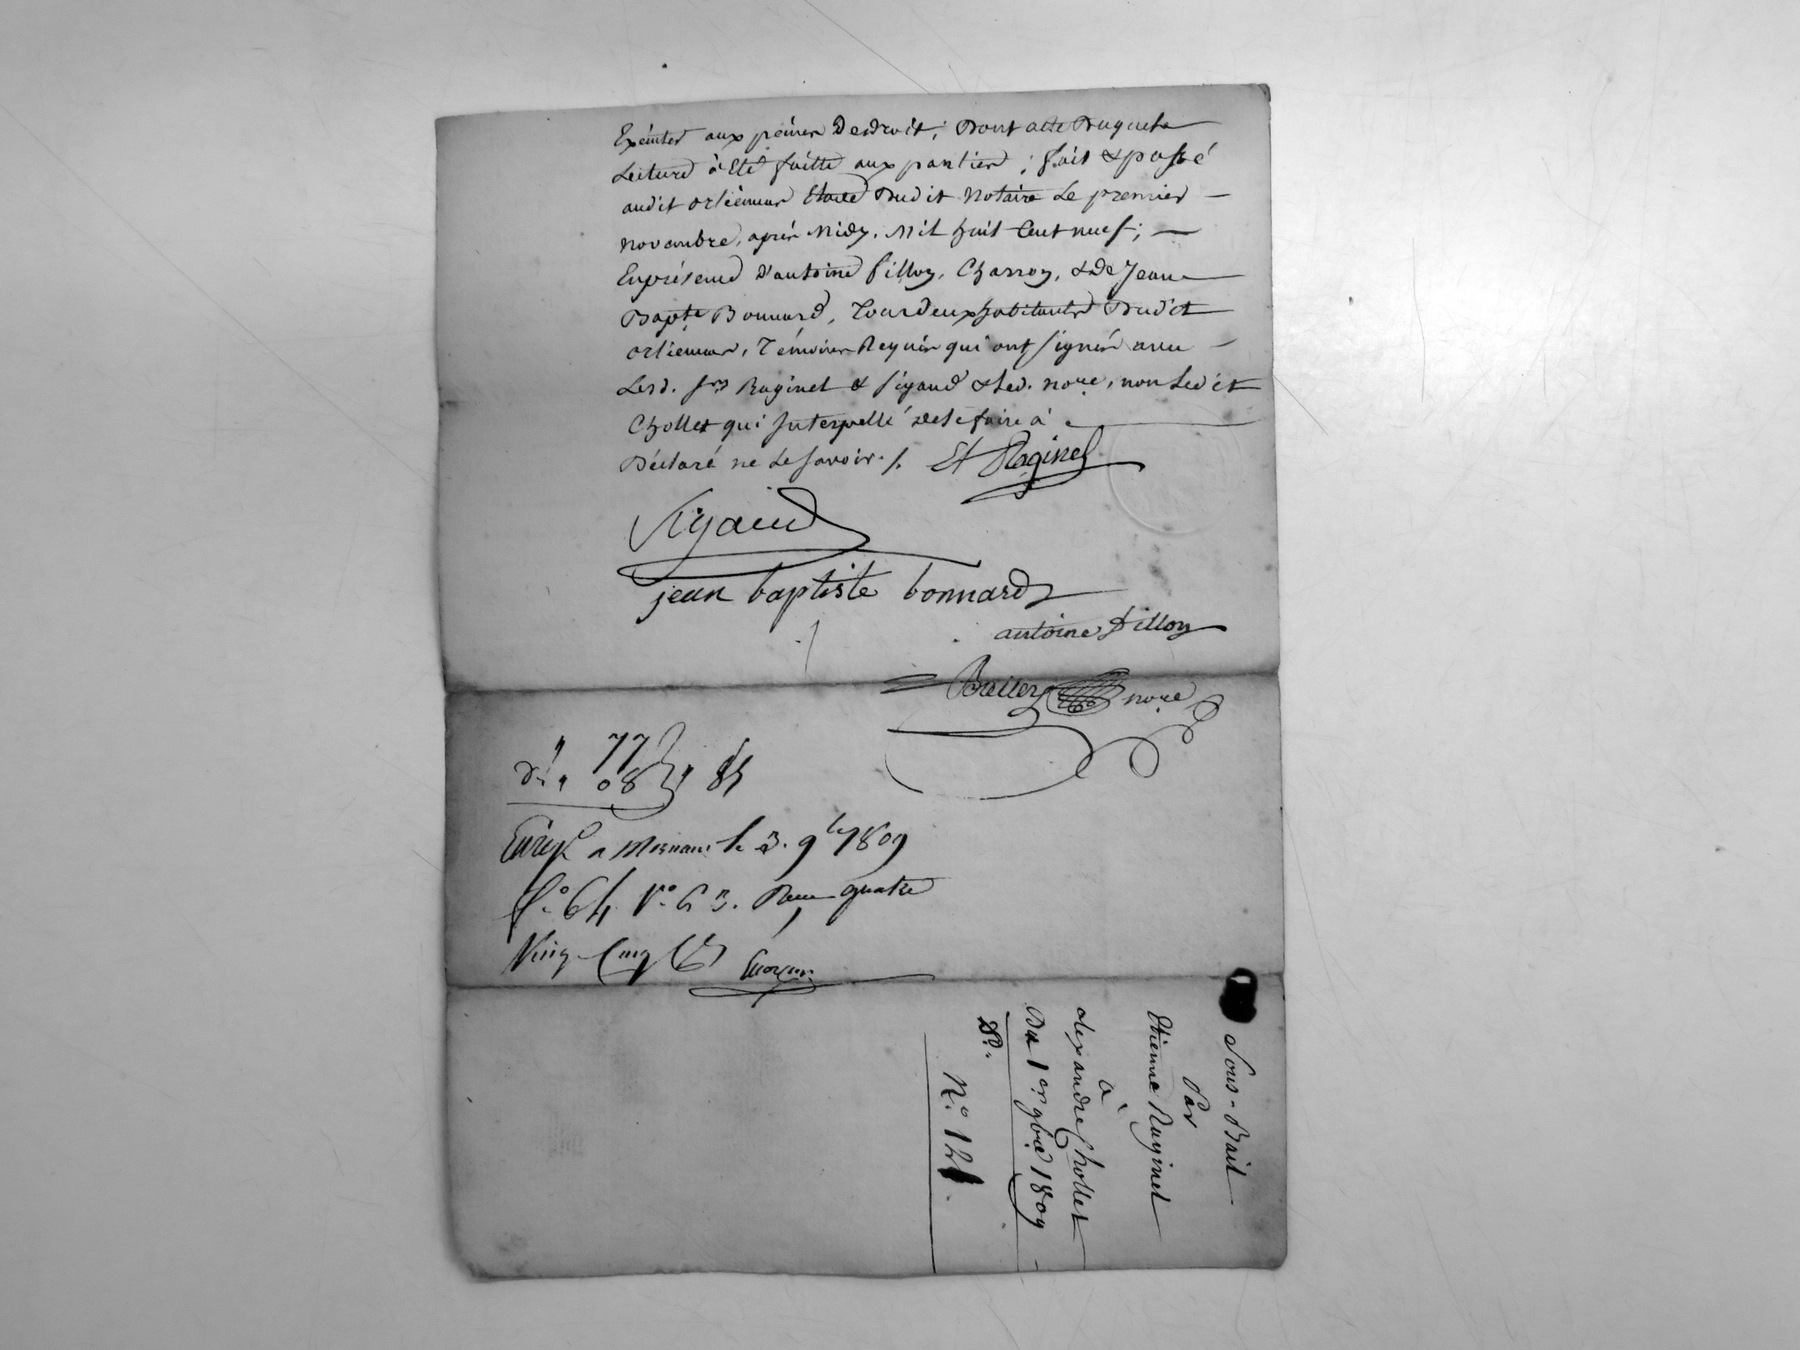 Exécuter aux peines de droit; Dont acte Duquel
Lecture à été faitte aux parties; fait & passé
audit orliénas Etude Dudit Notaire Le premier
novembre, après Midy, Mil huit Cent neuf;
En présence d'antoine pillon, Charron, & de Jean
Bapte. Bonnard, Tous deux habitants Dudit
orliénas, Témoins Requis qui ont signés avec
Lesd. srs Raginel & sigaud & Led. nore, non Ledit
Chollet qui Interpellé de le faire à
Déclaré ne Le savoir ./. Et Raginel
Sigaud
jean baptiste bonnard
antoine pillon
nore
77
08
Enregé a Mornant le 3. 9bre 1809
fo. 64 Vo. C 3. Reçu quatre
Vingt Cinq Ces
Sous-Bail
Par
Etienne Raginel
à
alexandre Chollet
Du 1er 9bre 1809
No. 121.